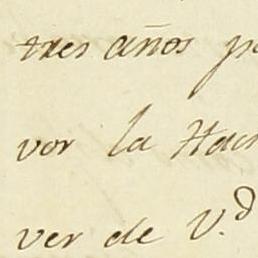 tres años p
vor la Hac
ver de V.d